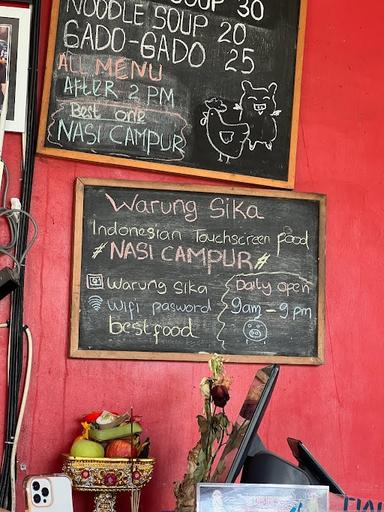 SOUP 30
NOODLE SOUP 20
GADO-GADO 25
ALL MENU
AFTER 2 PM
Best one
NASI CAMPUR
Warung Sika
Indonesian Touchscreen food
NASI CAMPUR
Warung Sika
Wifi pasword
bestfood
Daily open
9am - 9 pm